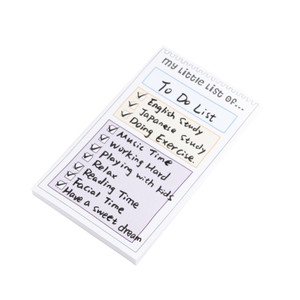 My Little List of...
To Do List
English Study
Japanese Study
Doing Exercise
Music Time
Working Hard
Playing with kids
Relax
Reading Time
Facial Time
Have a sweet dream